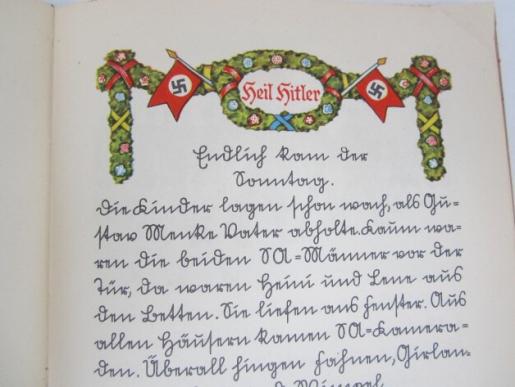 Heil Hitler
Endlich kam der
Sonntag.
Die Kinder lagen schon wach, als Gu-
stav Menke Vater abholte. Kaum wa-
ren die beiden SA=Männer vor der
Tür, da waren Heini und Lene aus
den Betten. Sie liefen ans Fenster. Aus
allen Häusern kamen SA=Kamera-
den. Überall hingen Fahnen, Girlan-
Wimpel